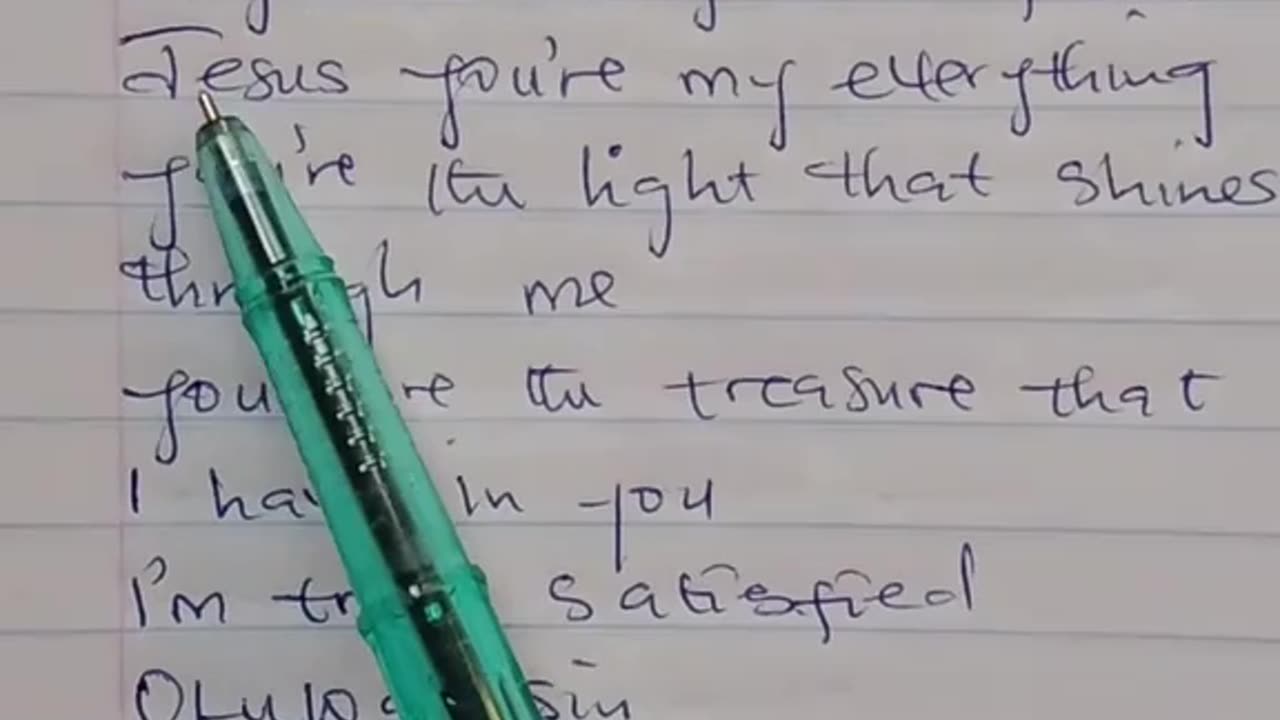 Jesus you're my everything
you're the light that shines
through me
you're the treasure that
I have in you
I'm satisfied